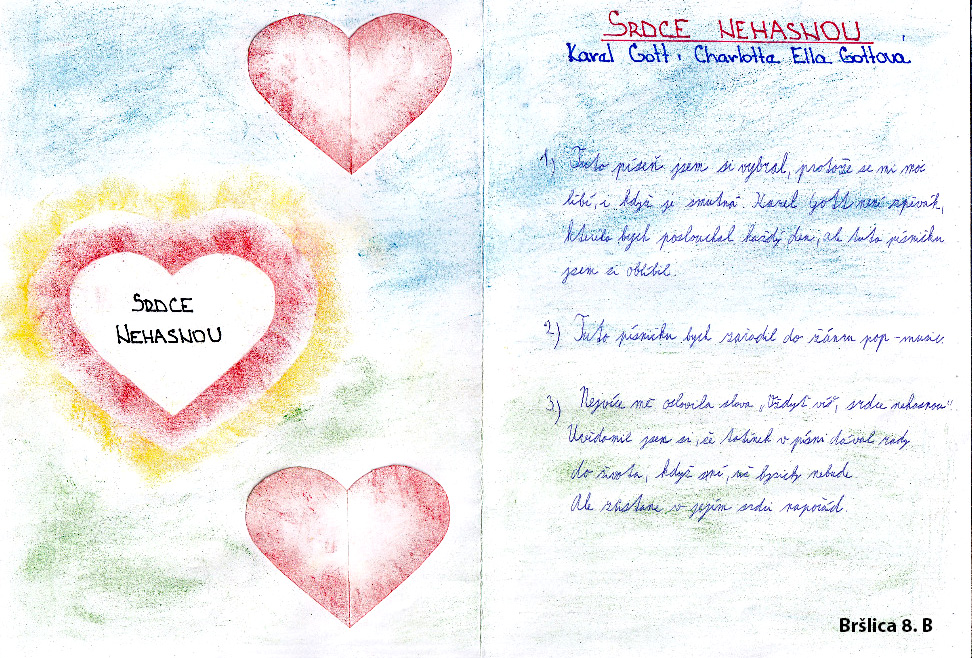 SRDCE
NEHASNOU
SRDCE NEHASNOU
Karel Gott, Charlotta Ella Gottová
1) Tuto píseň jsem si vybral, protože se mi moc
líbí, i když je smutná. Karel Gott není zpěvák,
kterého bych poslouchal každý den, ale tuto písničku
jsem si oblíbil.
2) Tuto písničku bych zařadil do žánru pop-music.
3) Nejvíce mě oslovila slova „Vždyť víš, srdce nehasnou“.
Uvědomil jsem si, že tatínek v písni dával rady
do života, když ví, že fyzicky nebude.
Ale zůstane v jejím srdci napořád.
Bršlica 8. B